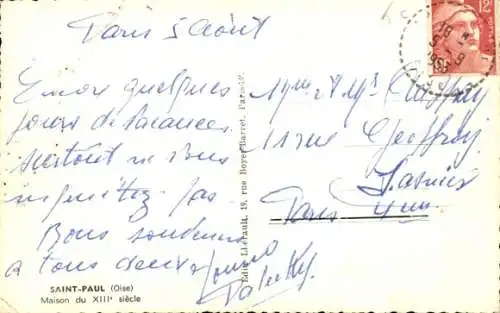 Paris 5 Août
Encore quelques
jours de vacances
surtout ne vous
inquiétez pas.
Bons souvenirs
à tous deux
SAINT-PAUL (Oise)
Maison du XIIIe siècle
Edit. Lherault, 19, rue Boyer-Barret, Paris-14e
12F
Mme et Mr
11 rue Geoffroy
Lasnier
Paris 4me